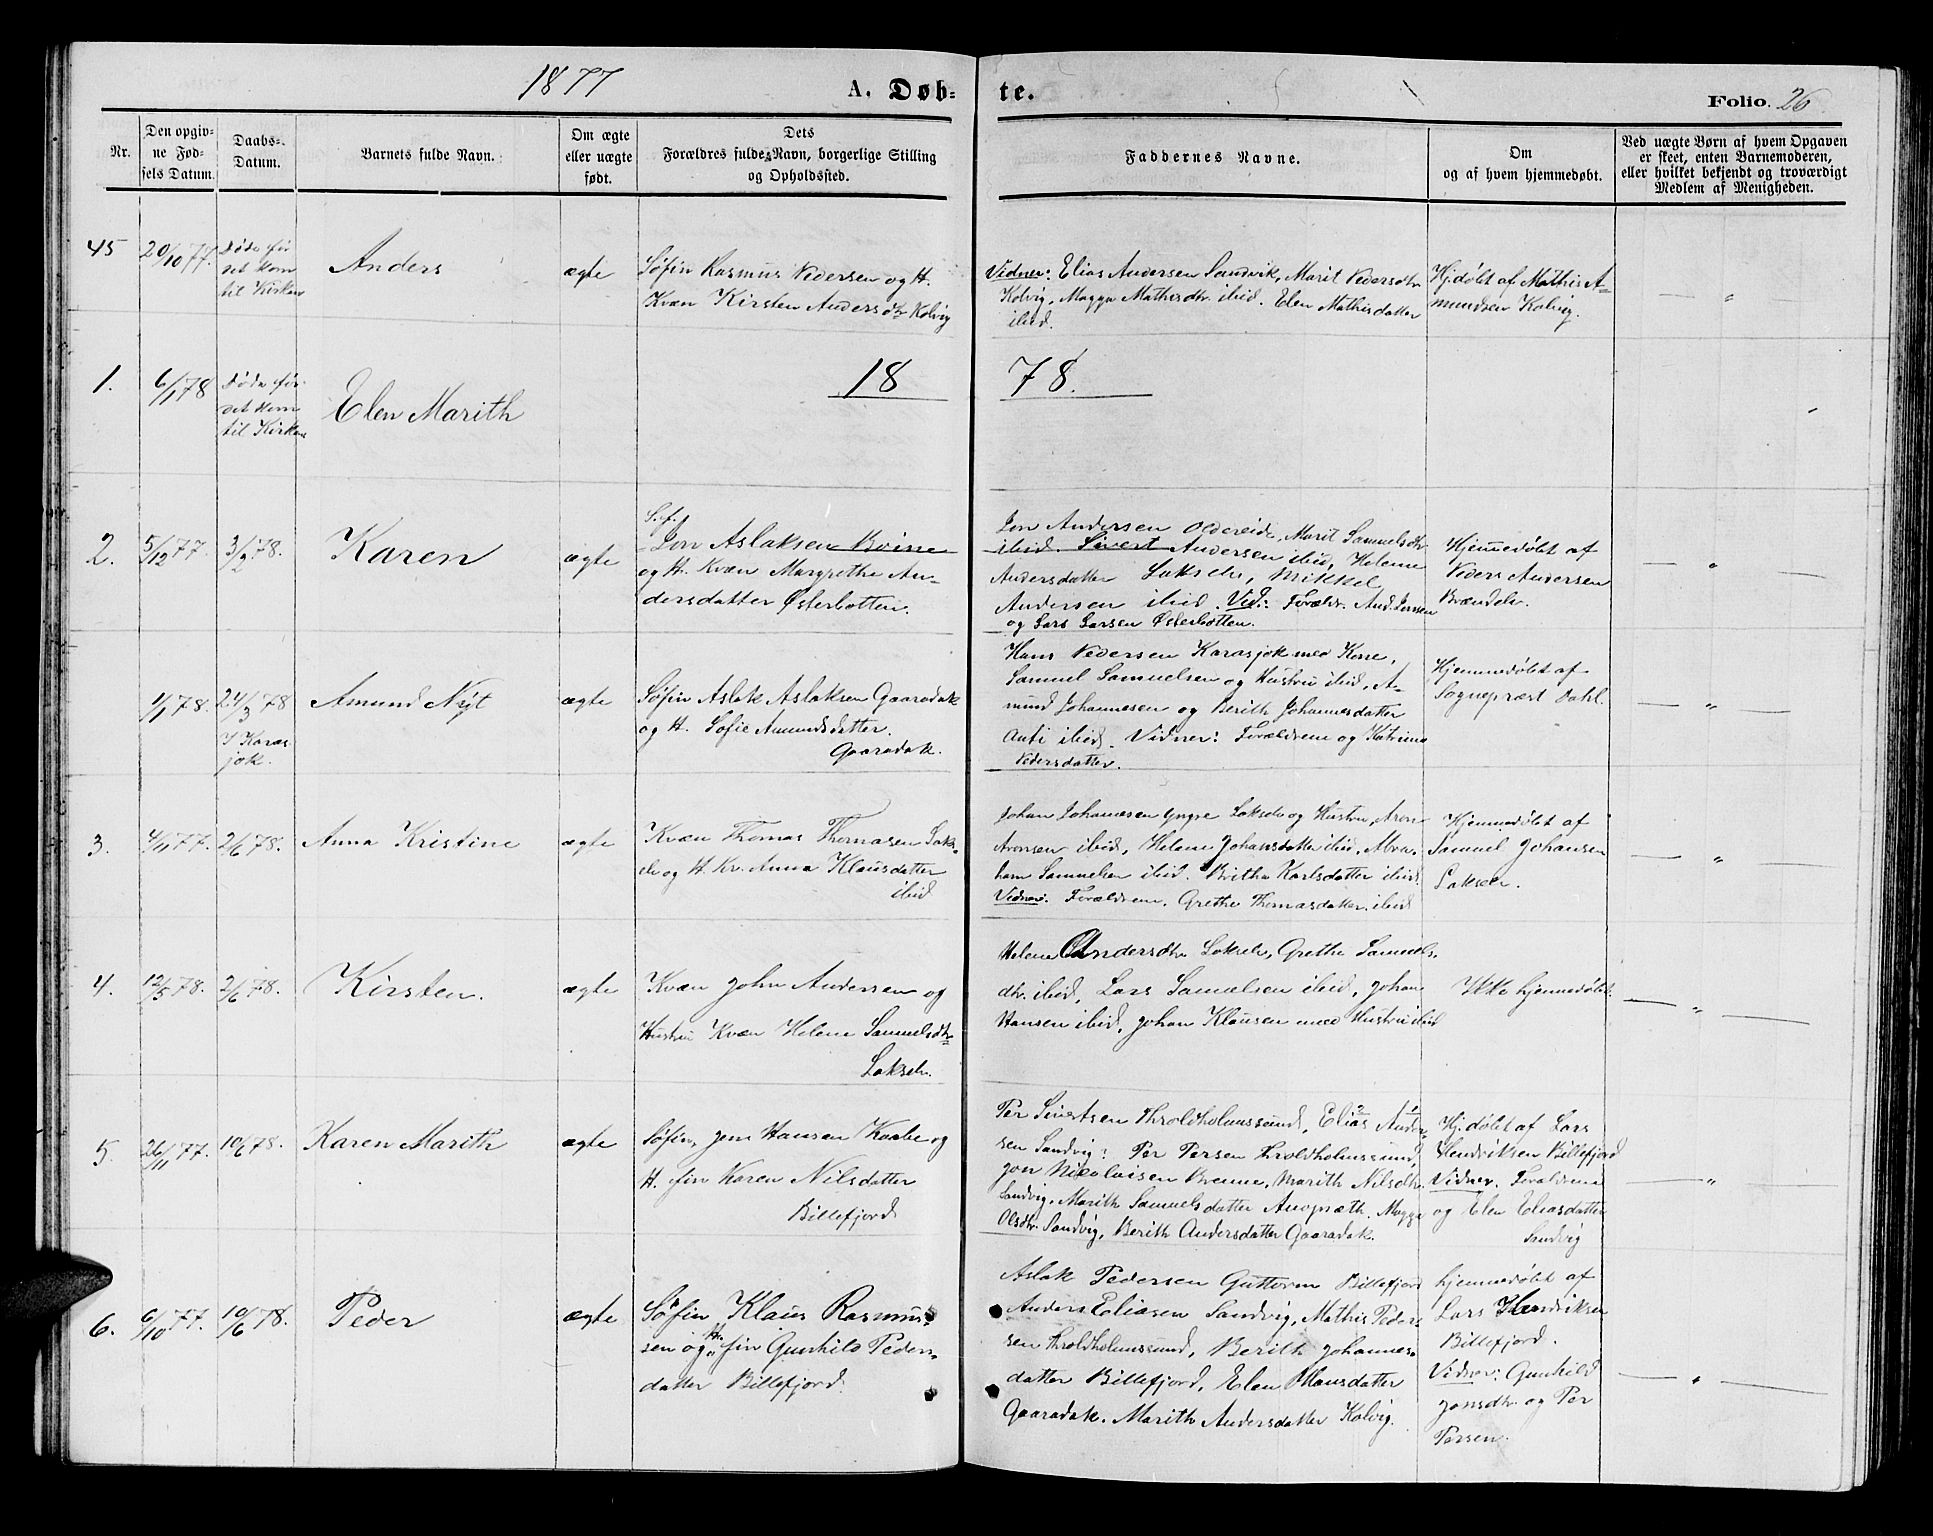 1877
A. Døb-
te.
Folio. 26
Nr.
Den opgiv-
ne Fød-
sels Datum.
Daabs-
Datum.
Barnets fulde Navn.
Om ægte
eller uægte
født.
Dets
Forældres fulde Navn, borgerlige Stilling
og Opholdssted.
Faddernes Navne.
Om
og af hvem hjemmedøbt.
Ved uægte Børn af hvem Opgaven
er skeet, enten Barnemoderen,
eller hvilket bekjendt og troværdigt
Medlem af Menigheden.
45
20/10 77.
Døde før
det kom
til Kirken
Anders
ægte
Søfin Rasmus Pedersen og H.
Kvæn Kirsten Andersdtr Kolvig
Vidner: Elias Andersen Sandvik, Marit Pedersdtr
Kolvig, Magga Mathisdtr. ibid. Elen Mathisdatter
ibid.
Hjdøbt af Mathis A-
mundsen Kolvig.
18
78.
1.
6/1 78
Døde før
det kom
til Kirken
Elen Marith
2.
5/12 77.
3/2 78.
Karen
ægte
S.f.
Jon Aslaksen Boine
og H. Kvæn Margrethe An-
dersdatter Østerbotten.
Jon Andersen Oldereid, Marit Samuelsdtr
ibid. Sivert Andersen ibid, Helene
Andersdatter Lakselv, Mikkel
Andersen ibid. Vid: Forældr. And. Larssen
og Lars Larsen Østerbotten.
Hjemmedøbt af
Peders Andersen
Brændelv.
1/1 78.
24/3 78
I Karas-
jok.
Amund Nyt
ægte
Søfin Aslak Aslaksen Gaaradak
og H. Sofie Amundsdatter.
Gaaradak.
Hans Pedersen Karasjok med Kone,
Samuel Samuelsen og Hustru ibid, A-
mund Johannesen og Berith Johannesdatter
Anti ibid. Vidner: Forældrene og Katrina
Pedersdatter.
Hjemmedøbt af
Sognepræst Dahl.
3.
4/11 77.
2/6 78.
Anna Kristine
ægte
Kvæn Thomas Thomasen Lak-
elv og H. Kv. Anna Klausdatter
ibid
Johan Johannesen yngre Lakselv og Hustru, Aron
Aronsen ibid, Helene Johansdatter ibid, Abra-
ham Samuelsen ibid. Britha Karlsdatter ibid.
Vidner: Forældrene, Grethe Thomasdatter ibid
Hjemmedøbt af
Samuel Johansen
Lakselv.
4.
12/5 78.
2/6 78.
Kirsten.
ægte
Kvæn John Andersen og
Hustru Kvæn Helene Samuelsdtr
Lakselv.
Helene Andersdtr Lakselv, Grethe Samuels-
dtr. ibid, Lars Samuelsen ibid, Johan
Hansen ibid, Johan Klausen med Hustru ibid
Ikke hjemmedøbt.
5.
26/11 77.
10/6 78.
Karen Marith
ægte
Søfin, Jens Hansen Kvabe og
H. fin Karen Nilsdatter
Billefjord
Per Sivertsen Throldholmssund, Elias Ander-
sen Sandvig: Per Persen Throldholmssund,
Jon Nicolaisen Brenne, Marith Nilsdtr.
Sandvig, Marith Samuelsdatter Avopræth. Magga
Olsdtr. Sandvig, Berith Andersdatter Gaaradak.
Hj. døbt af Lars
Hendriksen Billefjord
Vidner. Forældrene
og Elen Eliasdatter
Sandvig
6.
6/10 77.
10/6 78.
Peder
ægte
Søfin Klaus Rasmus-
sen og H. fin Gunhild Peders-
datter Billefjord.
Aslak Pedersen Guttorm Billefjord
Anders Eliasen Sandvig, Mathis Peder-
sen Throldholmssund, Berith Johannes-
datter Billefjord, Elen Klausdatter
Gaaradak. Marith Andersdatter Kolvig.
hjemmedøbt af
Lars Hendriksen
Billefjord.
Vidner: Gunhild
Jonsdtr. og Per
Persen.